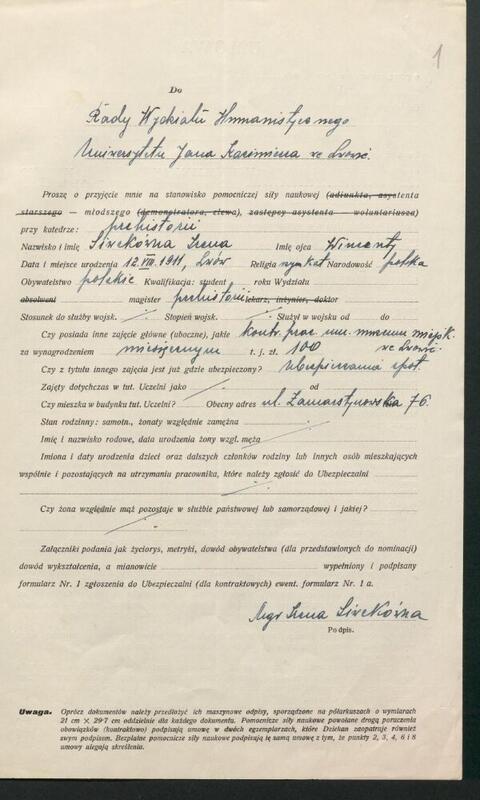 1
Do
Rady Wydziału Humanistycznego
Uniwersytetu Jana Kazimierza we Lwowie.
Proszę o przyjęcie mnie na stanowisko pomocniczej siły naukowej (adiunkta, asystenta
starszego — młodszego (demonstratora, elewa), zastępcy asystenta — woluntariusza)
przy katedrze: prehistorii
Nazwisko i imię Siwkówna Irena Imię ojca Wincenty
Data i miejsce urodzenia 12.VIII.1911, Lwów Religia rzym.kat Narodowość polska
Obywatelstwo polskie Kwalifikacja: student roku Wydziału
absolwent magister prehistorii lekarz, inżynier, doktor
Stosunek do służby wojsk. Stopień wojsk. Służył w wojsku od do
Czy posiada inne zajęcie główne (uboczne), jakie kontr. prac. um. muzeum miejsk.
za wynagrodzeniem miesięcznym t. j. zł. 100 we Lwowie.
Czy z tytułu innego zajęcia jest już gdzie ubezpieczony? Ubezpieczalnia społ.
Zajęty dotychczas w tut. Uczelni jako od
Czy mieszka w budynku tut. Uczelni? Obecny adres ul. Zamarstynowska 76.
Stan rodzinny: samotn., żonaty względnie zamężna
Imię i nazwisko rodowe, data urodzenia żony wzgl. męża
Imiona i daty urodzenia dzieci oraz dalszych członków rodziny lub innych osób mieszkających
wspólnie i pozostających na utrzymaniu pracownika, które należy zgłosić do Ubezpieczalni
Czy żona względnie mąż pozostaje w służbie państwowej lub samorządowej i jakiej?
Załączniki podania jak życiorys, metryki, dowód obywatelstwa (dla przedstawionych do nominacji)
dowód wykształcenia, a mianowicie wypełniony i podpisany
formularz Nr. 1 zgłoszenia do Ubezpieczalni (dla kontraktowych) ewent. formularz Nr. 1 a.
Mgr Irena Siwkówna
Podpis.
Uwaga. Oprócz dokumentów należy przedłożyć ich maszynowe odpisy, sporządzone na półarkuszach o wymiarach
21 cm × 29·7 cm oddzielnie dla każdego dokumentu. Pomocnicze siły naukowe powołane drogą poruczenia
obowiązków (kontraktowo) podpisują umowę w dwóch egzemplarzach, które Dziekan zaopatruje również
swym podpisem. Bezpłatne pomocnicze siły naukowe podpisują tę samą umowę z tym, że punkty 2, 3, 4, 6 i 8
umowy ulegają skreśleniu.